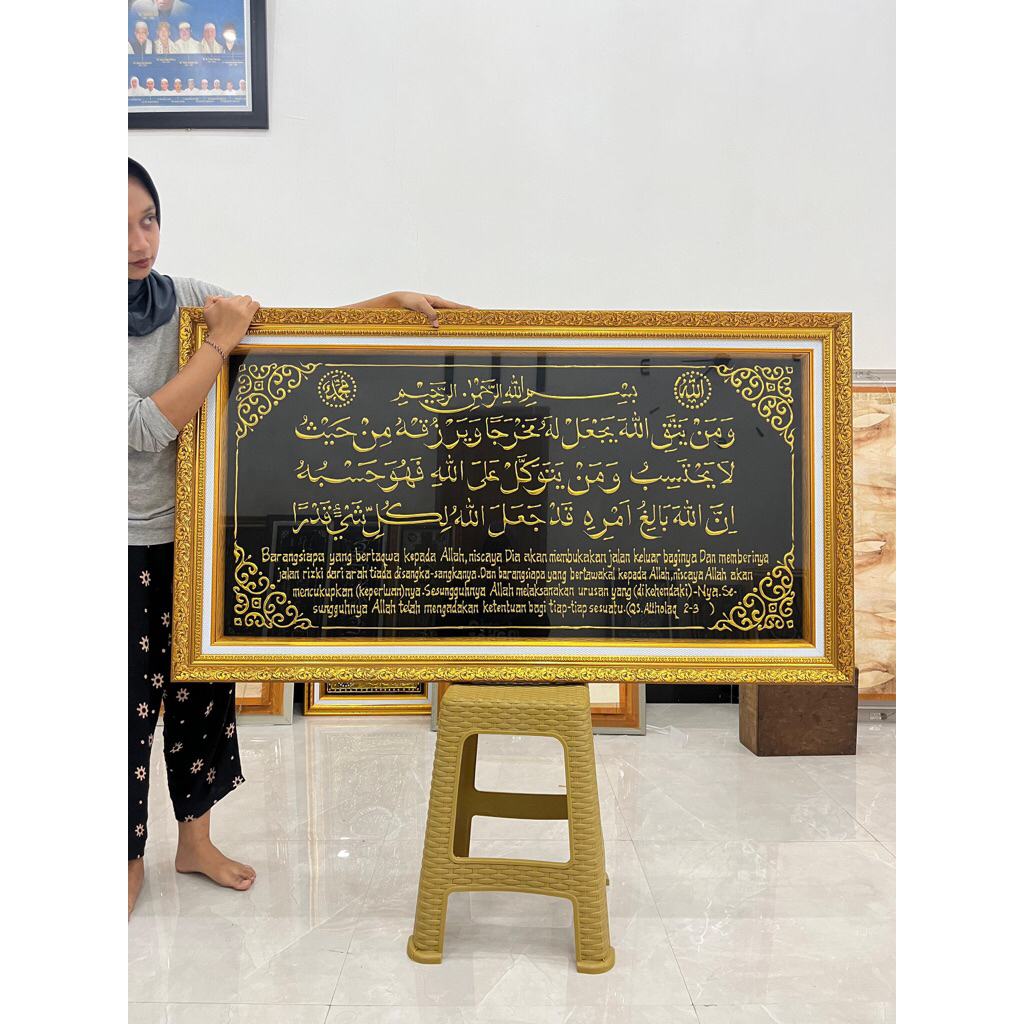 الله
محمد
بِسْمِ اللهِ الرَّحْمٰنِ الرَّحِيْمِ
وَمَنْ يَتَّقِ اللهَ يَجْعَلْ لَهُ مَخْرَجًا وَيَرْزُقْهُ مِنْ حَيْثُ
لَا يَحْتَسِبُ وَمَنْ يَتَوَكَّلْ عَلَى اللهِ فَهُوَ حَسْبُهُ
اِنَّ اللهَ بَالِغُ اَمْرِهِ قَدْ جَعَلَ اللهُ لِكُلِّ شَيْءٍ قَدْرًا
Barangsiapa yang bertaqwa kepada Allah,niscaya Dia akan membukakan jalan keluar baginya Dan memberinya
jalan rizki dari arah tiada disangka-sangkanya.Dan barangsiapa yang bertawakal kepada Allah,niscaya Allah akan
mencukupkan (keperluan)nya.Sesungguhnya Allah melaksanakan urusan yang (dikehendaki)-Nya.Se-
sungguhnya Allah telah mengadakan ketentuan bagi tiap-tiap sesuatu.(QS. Attholaq 2-3 )